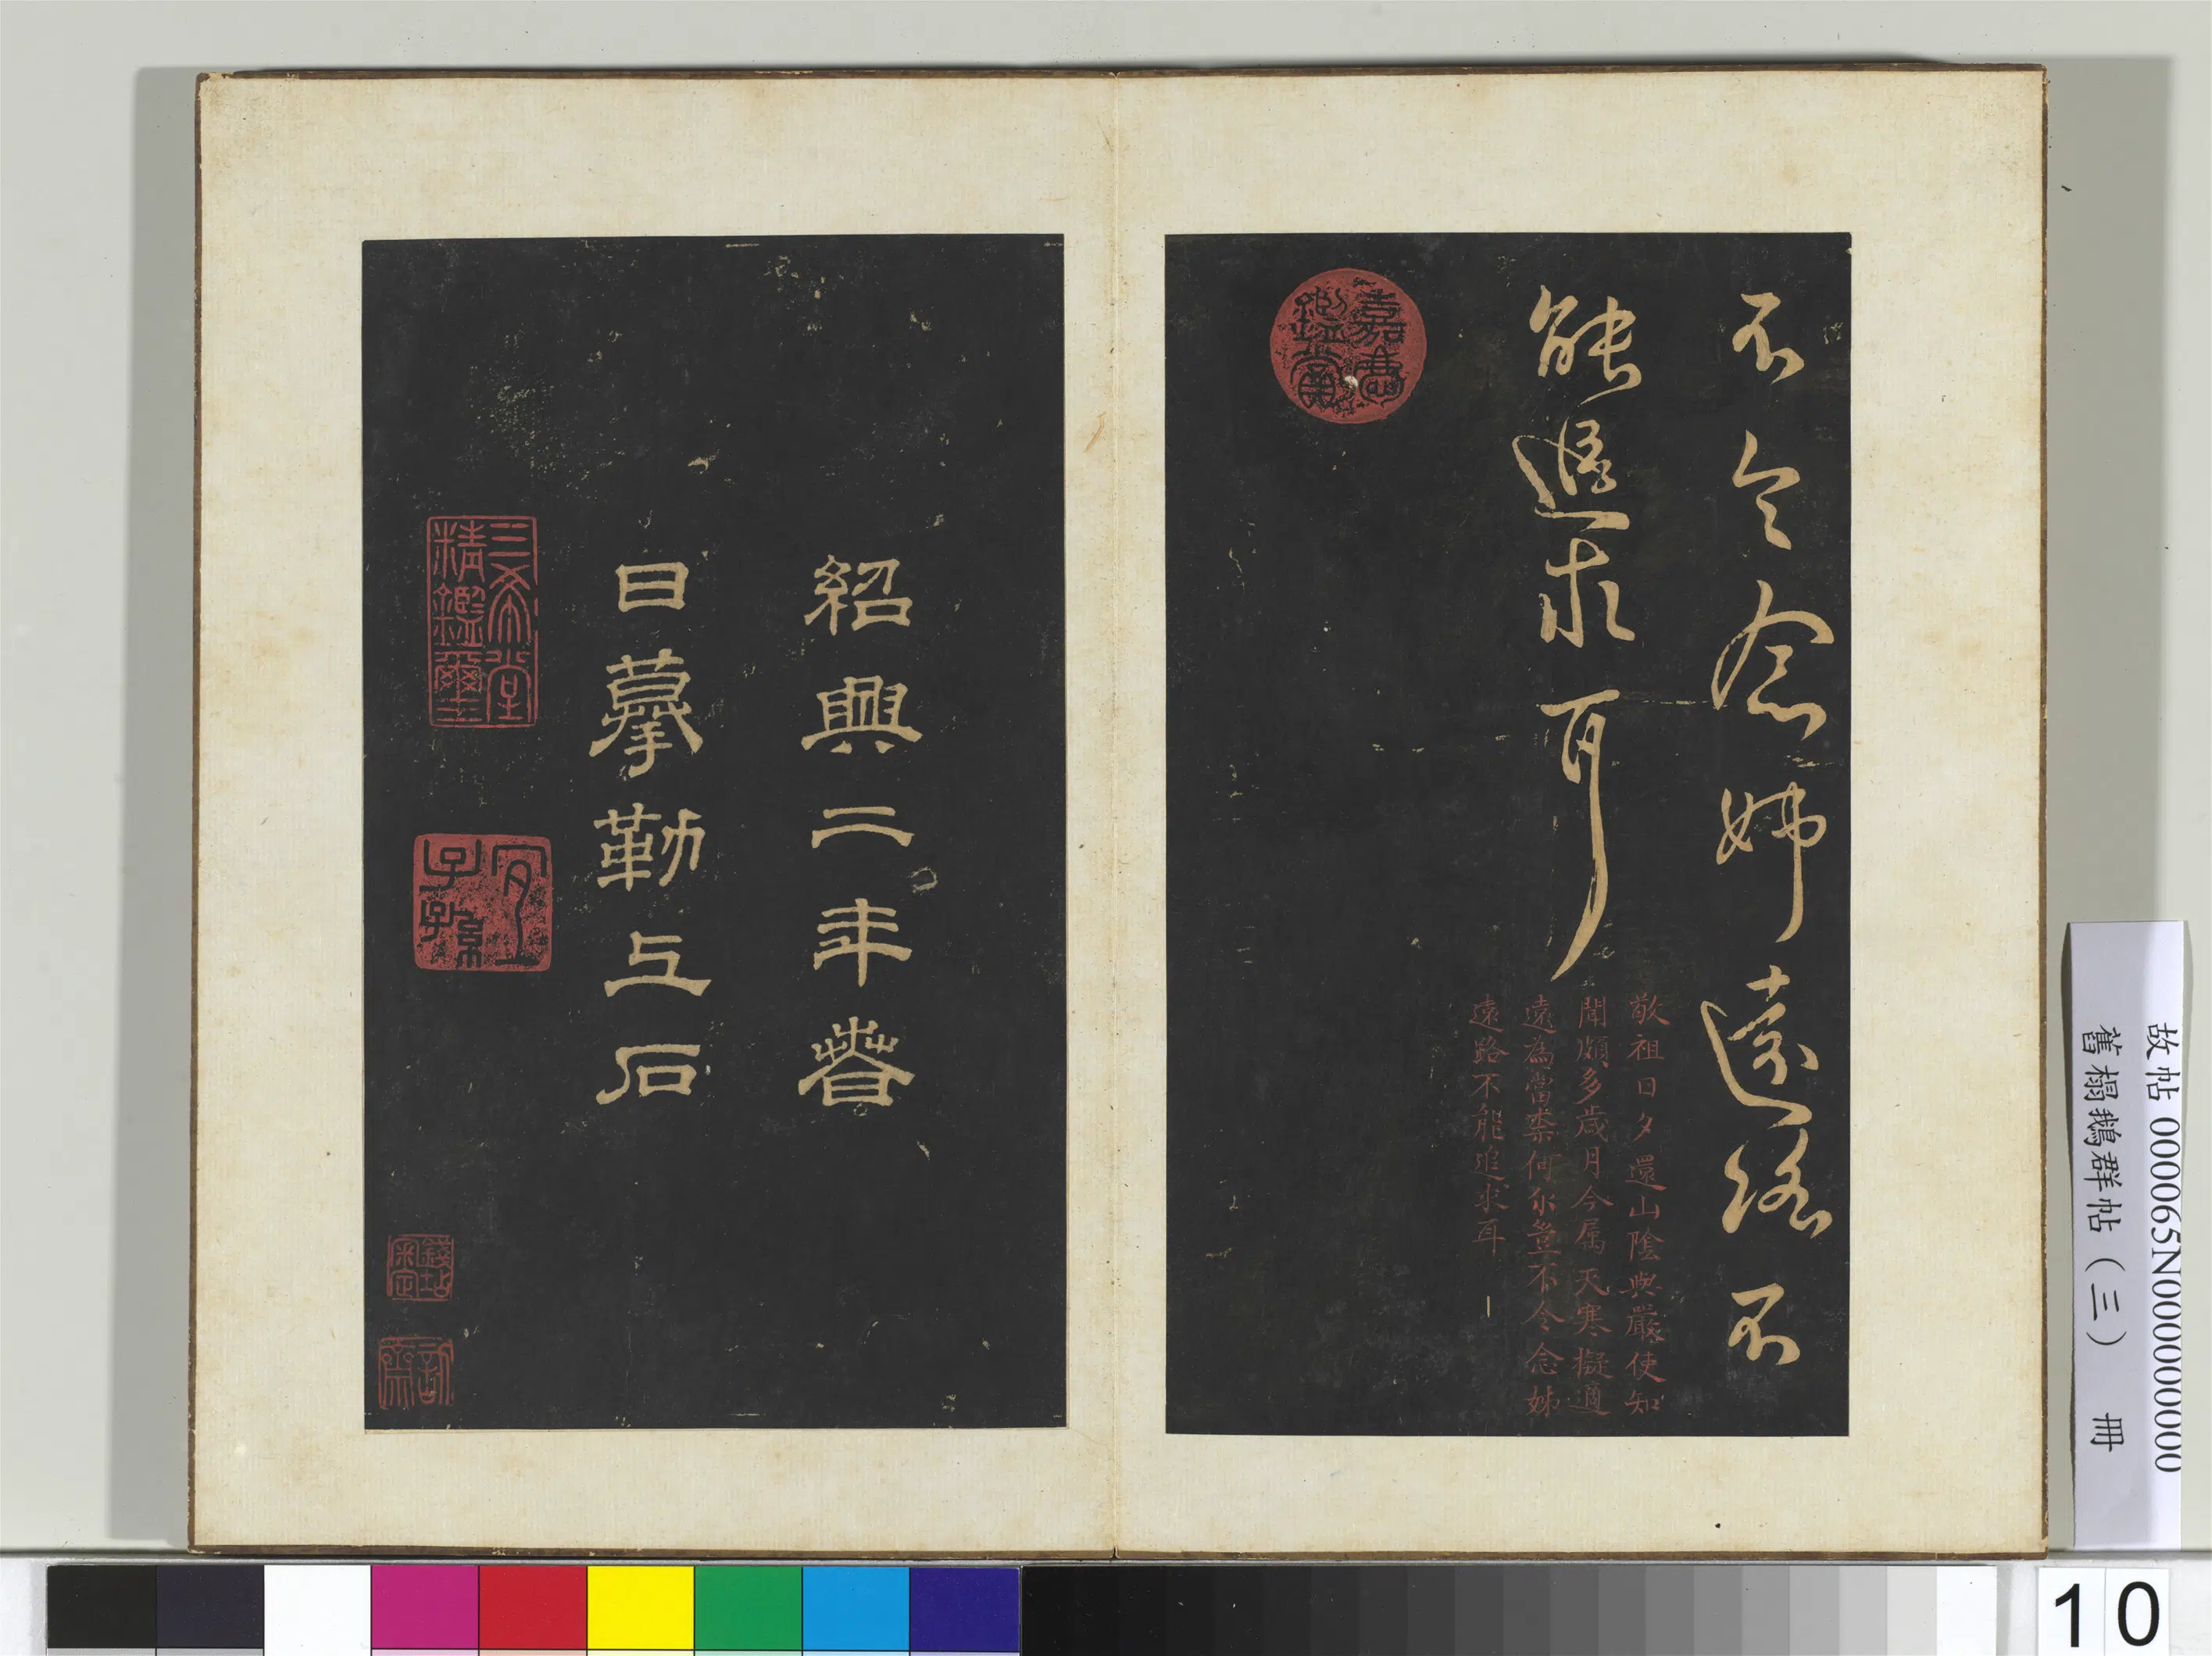 不令念姊遠路不
能追求耳
嘉慶
鑑賞
敬祖日夕還山陰與嚴使知
聞頗多歲月今屬天寒擬適
遠為當柰何尔豈不令念姊
遠路不能追求耳
紹興二年春
日摹勒上石
三希堂
精鑑璽
宜
子孫
錢坫
審定
故帖 000065N000000000
舊榻鵝群帖（三） 冊
10